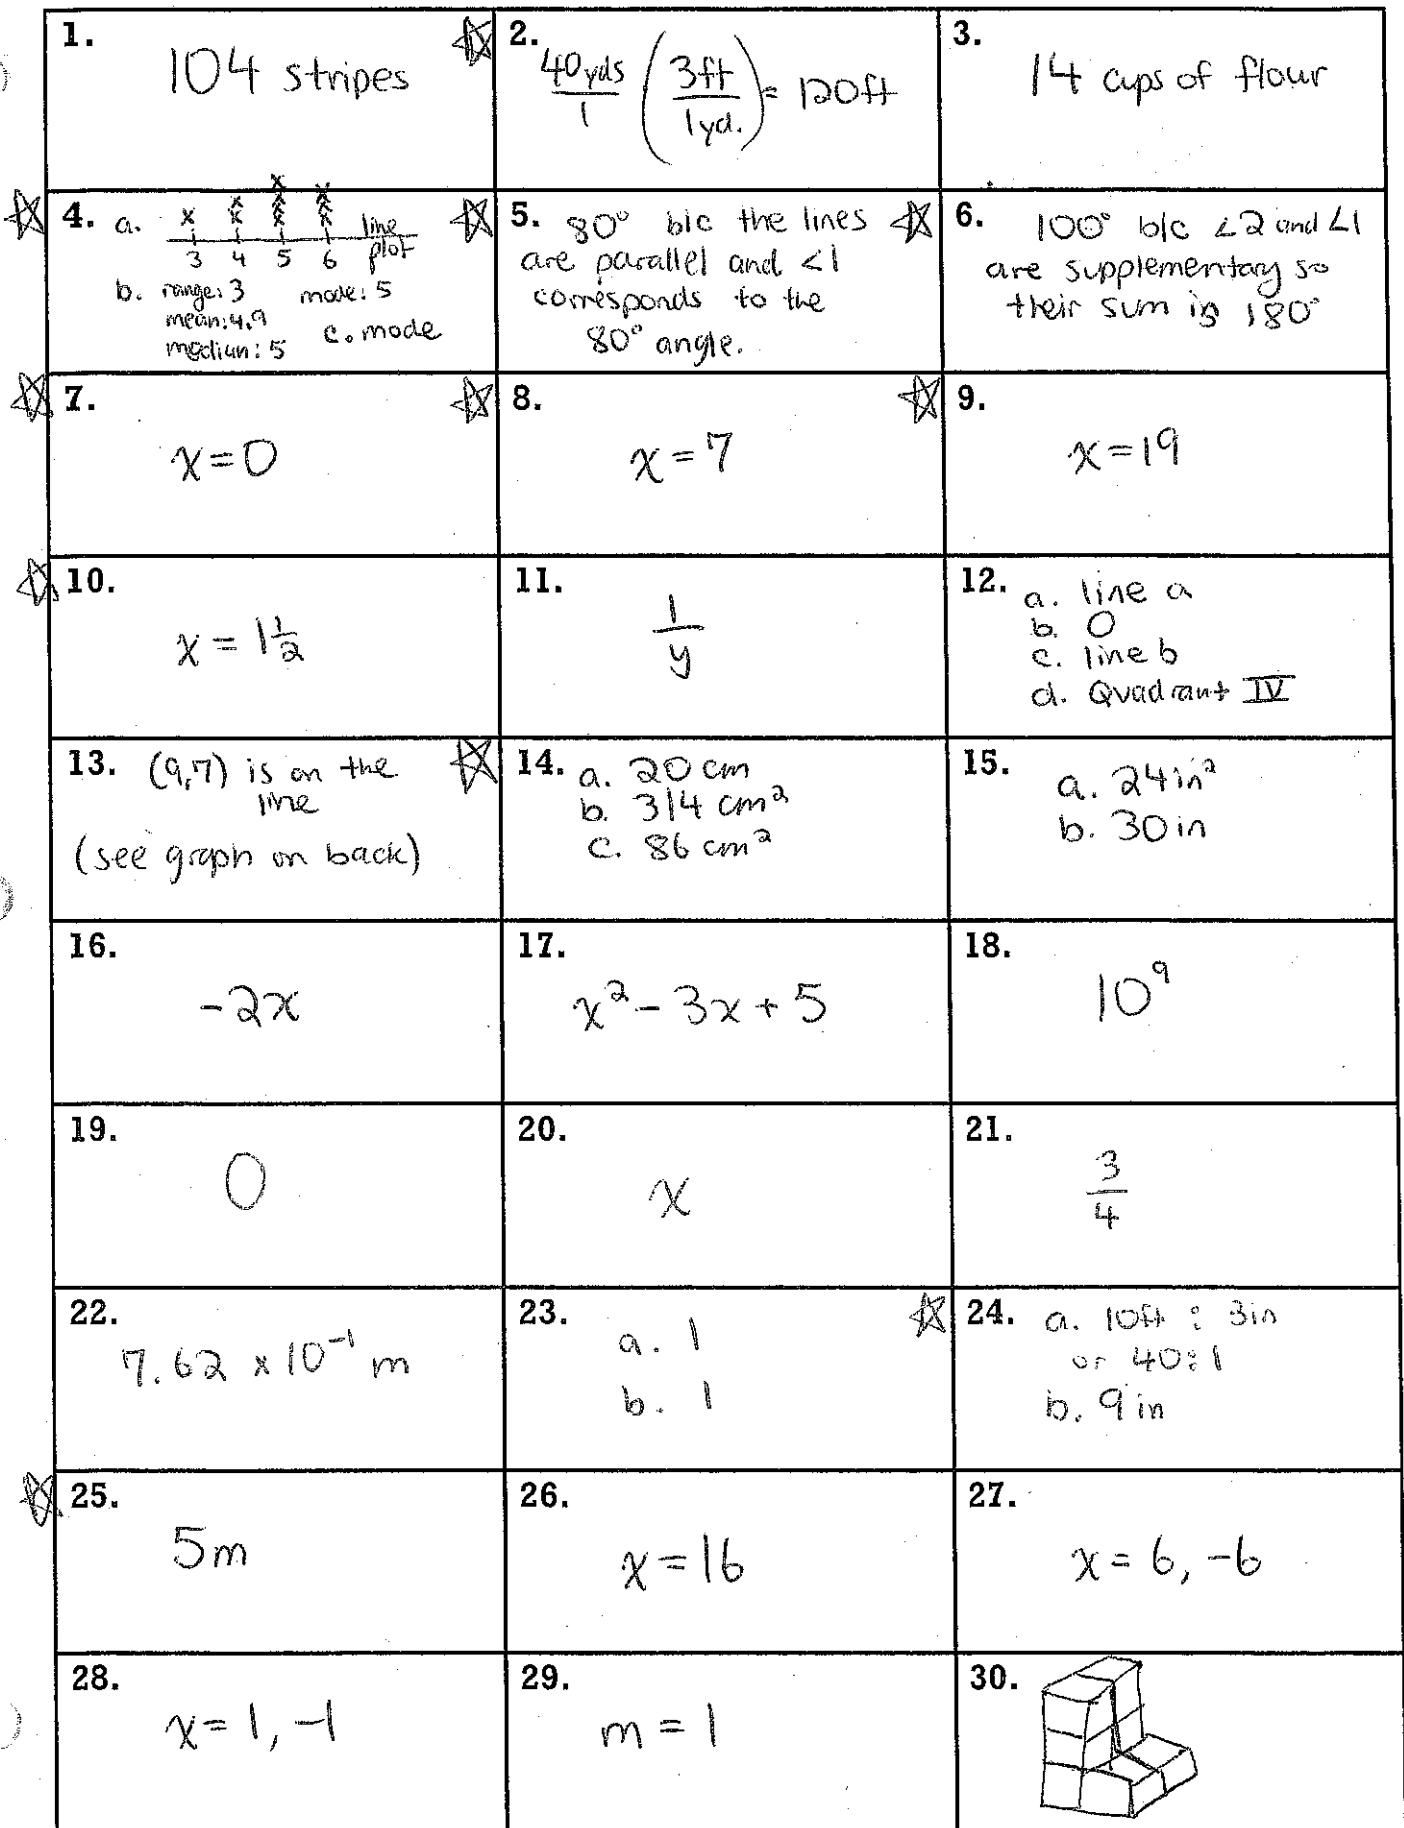 1.
104 stripes
2.
40yds/1 (3ft/1yd.) = 120ft
3.
14 cups of flour
4. a.
3 4 5 6
line
plot
b. range: 3 mode: 5
mean: 4.9
median: 5 c. mode
5. 80° b/c the lines
are parallel and ∠1
corresponds to the
80° angle.
6. 100° b/c ∠2 and ∠1
are supplementary so
their sum is 180°
7.
x=0
8.
x=7
9.
x=19
10.
x = 1 1/2
11.
1/y
12. a. line a
b. 0
c. line b
d. Quadrant IV
13. (9,7) is on the
line
(see graph on back)
14. a. 20 cm
b. 314 cm²
c. 86 cm²
15.
a. 24in²
b. 30in
16.
-2x
17.
x² - 3x + 5
18.
10⁹
19.
0
20.
x
21.
3/4
22.
7.62 x 10⁻¹ m
23.
a. 1
b. 1
24. a. 10ft : 3in
or 40:1
b. 9in
25.
5m
26.
x=16
27.
x = 6, -6
28.
x = 1, -1
29.
m = 1
30.